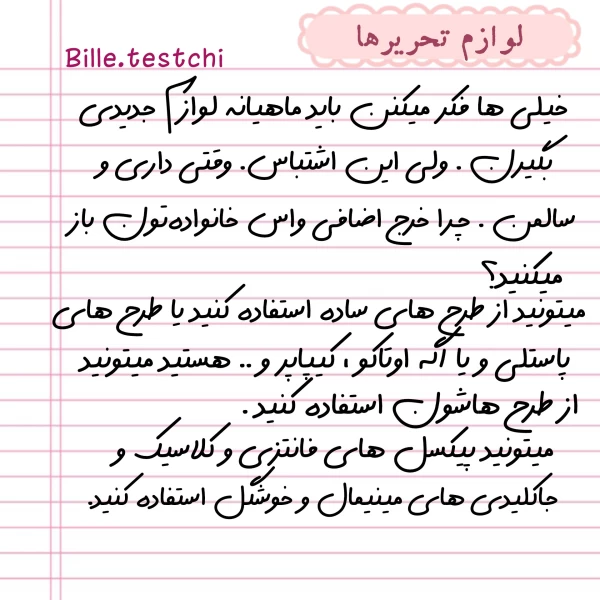 لوازم تحریرها
Bille.testchi
خیلی ها فکر میکنن باید ماهیانه لوازم جدیدی
بگیرن . ولی این اشتباس. وقتی داری و
سالمن . چرا خرج اضافی واس خانواده‌تون باز
میکنید؟
میتونید از طرح های ساده استفاده کنید یا طرح های
پاستلی و یا اگه اوتاکو ، کیپاپر و .. هستید میتونید
از طرح هاشون استفاده کنید .
میتونید پیکسل های فانتزی و کلاسیک و
جاکلیدی های مینیمال و خوشگل استفاده کنید.